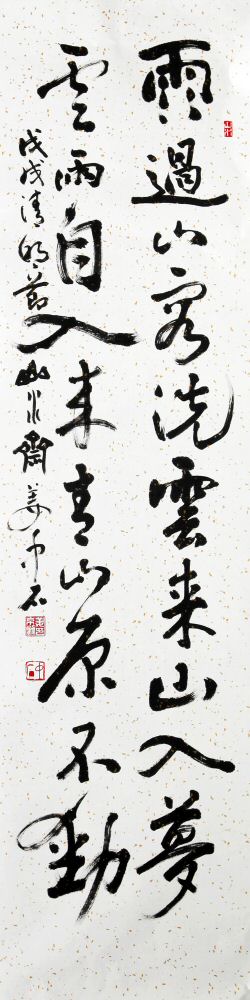 雨過山容洗雲来山入夢
雲雨自入来青山原不動
戊戌清明節山水齋姜石